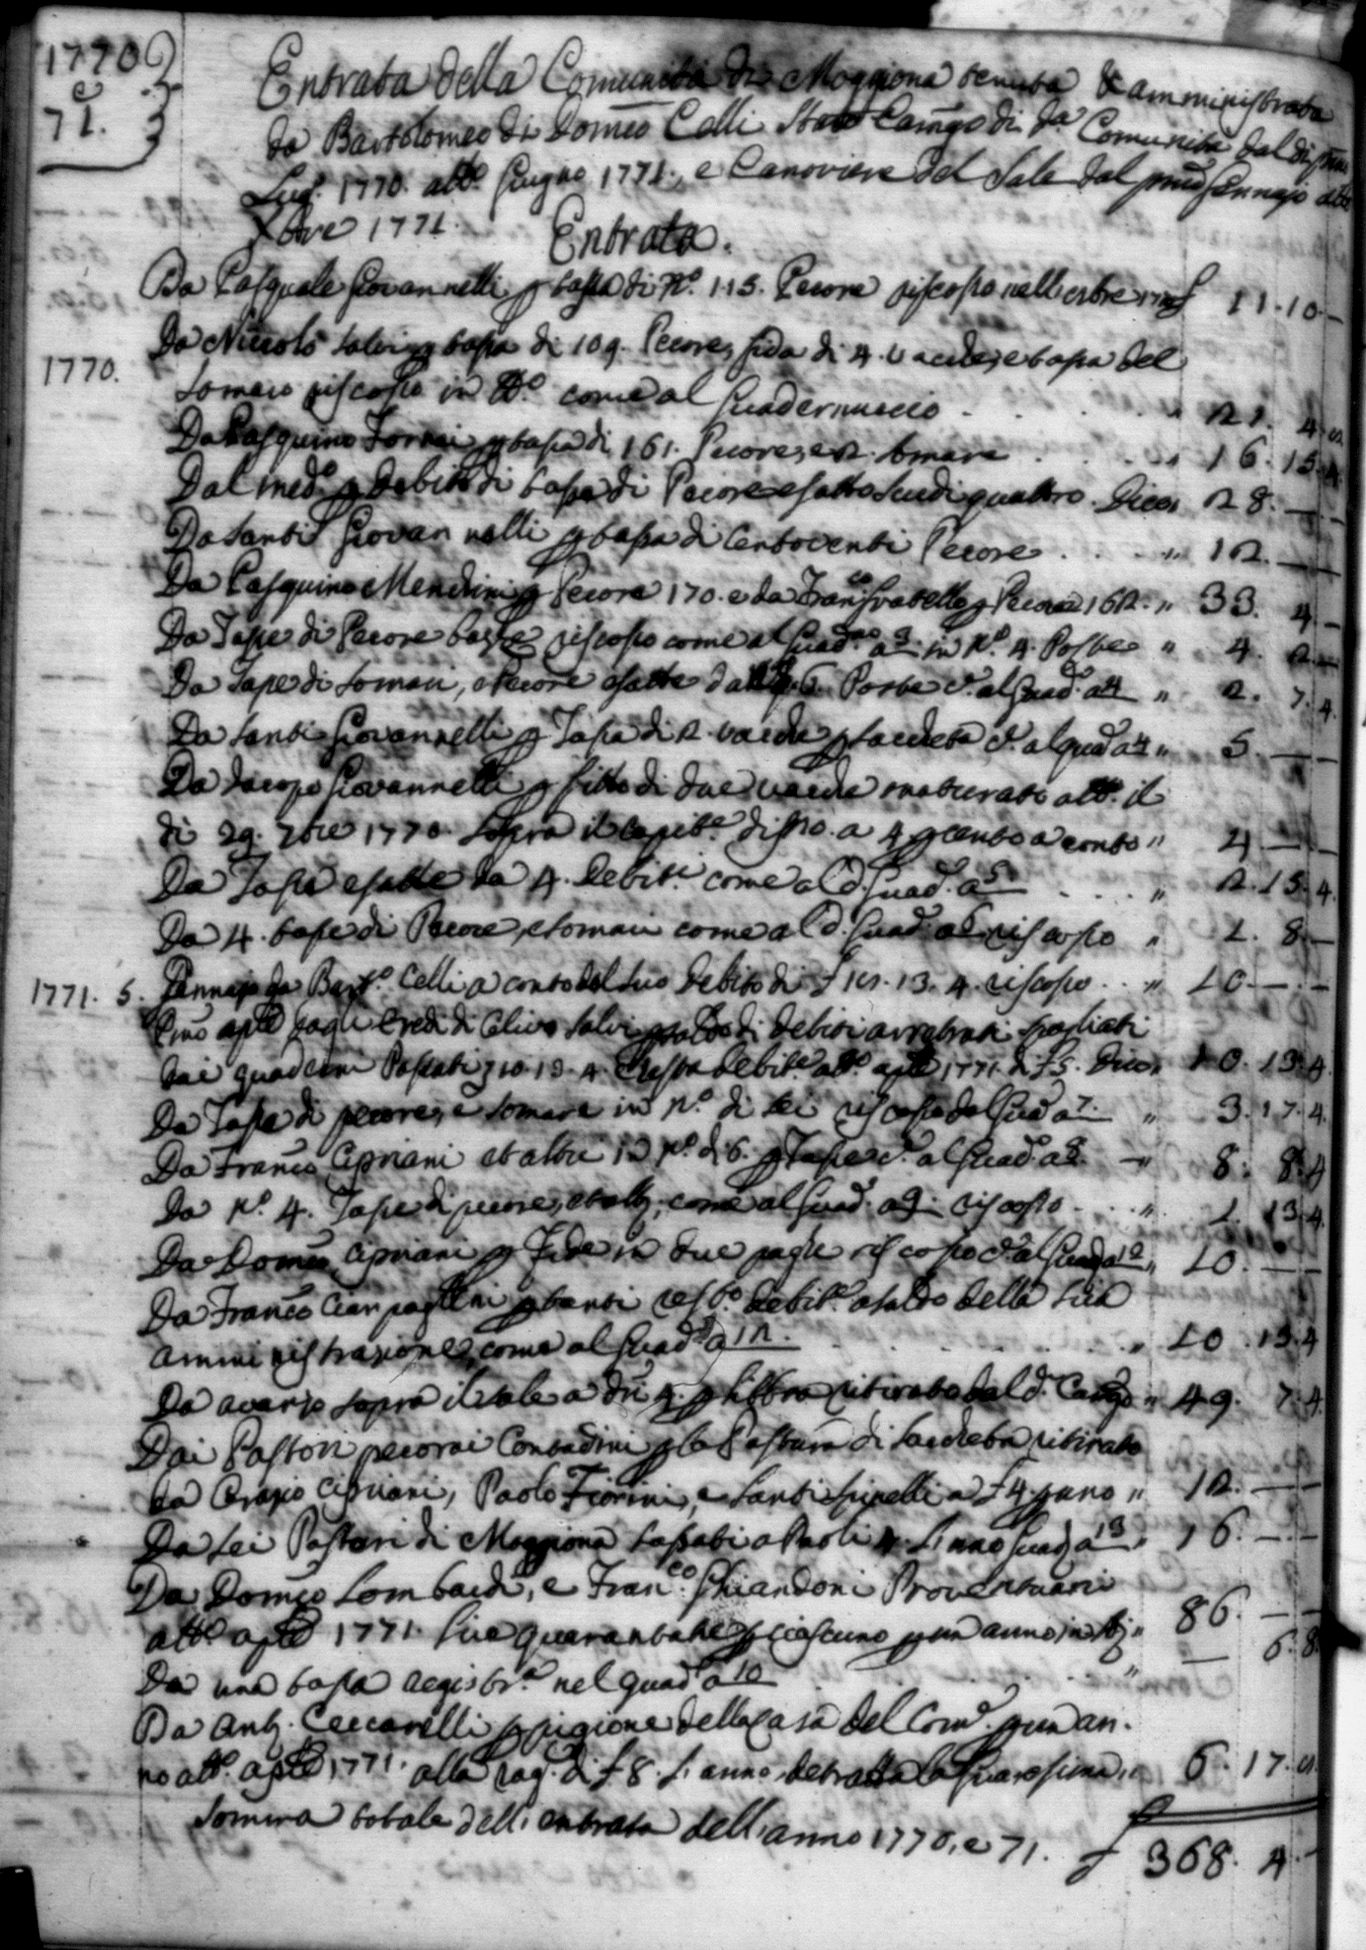 1770
e
71.
Entrata della Comunità di Moggiona tenuta & amministrata
da Bartolomeo di Domco Celli Stato Camgo di da Comunità dal di pmo
Lugo 1770. atto Giugno 1771., e Canoviere del Sale dal pmo Gennajo atto
Xbre 1771.
Entrata.
Da Pasquale Giovannelli p tassa di No. 115. Pecore riscosso nell' 8bre 1770 £ 11.10.—
1770. Da Niccolò Salvi p tassa di 109. Pecore, fida di 4. vacche, e tassa del
Somaro riscosso in do come al Quadernuccio . . . " 21. 4.
Da Pasquino Fornai p tassa di 161. Pecore, e 2. Somare . . . " 16. 15. 4.
Dal medo p debito di tassa di Pecore esatto Scudi quattro. Dico " 28. — —
Da Santi Giovannelli p tassa di Centoventi Pecore . . . " 12. — —
Da Pasquino Mendini p Pecore 170. e da Franco Fratello p Pecore 162. " 33. 4. —
Da Tasse di Pecore riscosso come al Quado a 3. in No. 4. Poste " 4. 2. —
Da Tasse di Somari, e Pecore esatte da 6. Poste co al Quado a 4 " 2. 7. 4.
Da Santi Giovannelli p Tassa di 2. vacche p Sacheta co al quado a 4 " 5. — —
Da Jacopo Giovannelli p fitto di due vacche maturato atto il
di 29. 7bre 1770. Sopra il Capite di sno. a 4 p cento a conto " 4 — —
Da Tasse esatte da 4. Debiti come al do Quado a 5 . . . " 2. 15. 4.
Da 4. tasse di Pecore, e Somari come al do Quado a 6 riscosso " 1. 8 —
1771. 5. Gennajo da Barto Celli a conto del suo debito di £ 13. 4. riscosso . . " 10 — —
Pmo aple dagli Eredi di Salvi p saldo di debiti arretrati spogliati
dai quaderni Passati £ 10. 13. 4. Resta debite atto aple 1771. di £ 5. Dico " 10. 13. 4.
Da Tasse di pecore, e Somare in No. di sei riscosse dal Quado a 7. " 3. 17. 4.
Da Franco Cipriani et altri in No. di 6. p Tasse co al Quado a 8. " 8. 8. 4
Da No. 4. Tasse di pecore, et altro, come al Quado a 9. riscosso . . . " 1. 13. 4.
Da Domco Cipriani p Fida in due paghe riscosso co al Quado a 10 " 10. — —
Da Franco Ciampaglini p tanti resto debite a saldo della sua
amministrazione, come al Quado a 12. . . . " 10. 13. 4
Da avanzo sopra il sale a di 4. p libbra ritirato dal do Camgo " 49. 7. 4
Dai Pastori pecorai Contadini p la Pastura di Sacheta ritirato
da Orazio Cipriani, Paolo Fiorini, e Santi Spinelli a £ 4. p uno " 12. — —
Da Sei Pastori di Moggiona tassati a Paoli 4. l'uno Quado a 13. " 16. — —
Da Domco Lombardi, e Franco Ghiandoni Proventuari
atto aple 1771. Lire quarantatre p ciascuno p un anno in tto " 86. — —
Da una tassa registra nel quado a 10 . . . " — 6. 8.
Da Anto Ceccarelli p pigione della casa del Come p un an-
no atto aple 1771. alla rage di £ 8. l'anno, detratta la Quaresima " 6. 17.
Somma totale dell' entrata dell' anno 1770, e 71. £ 368. 4. —